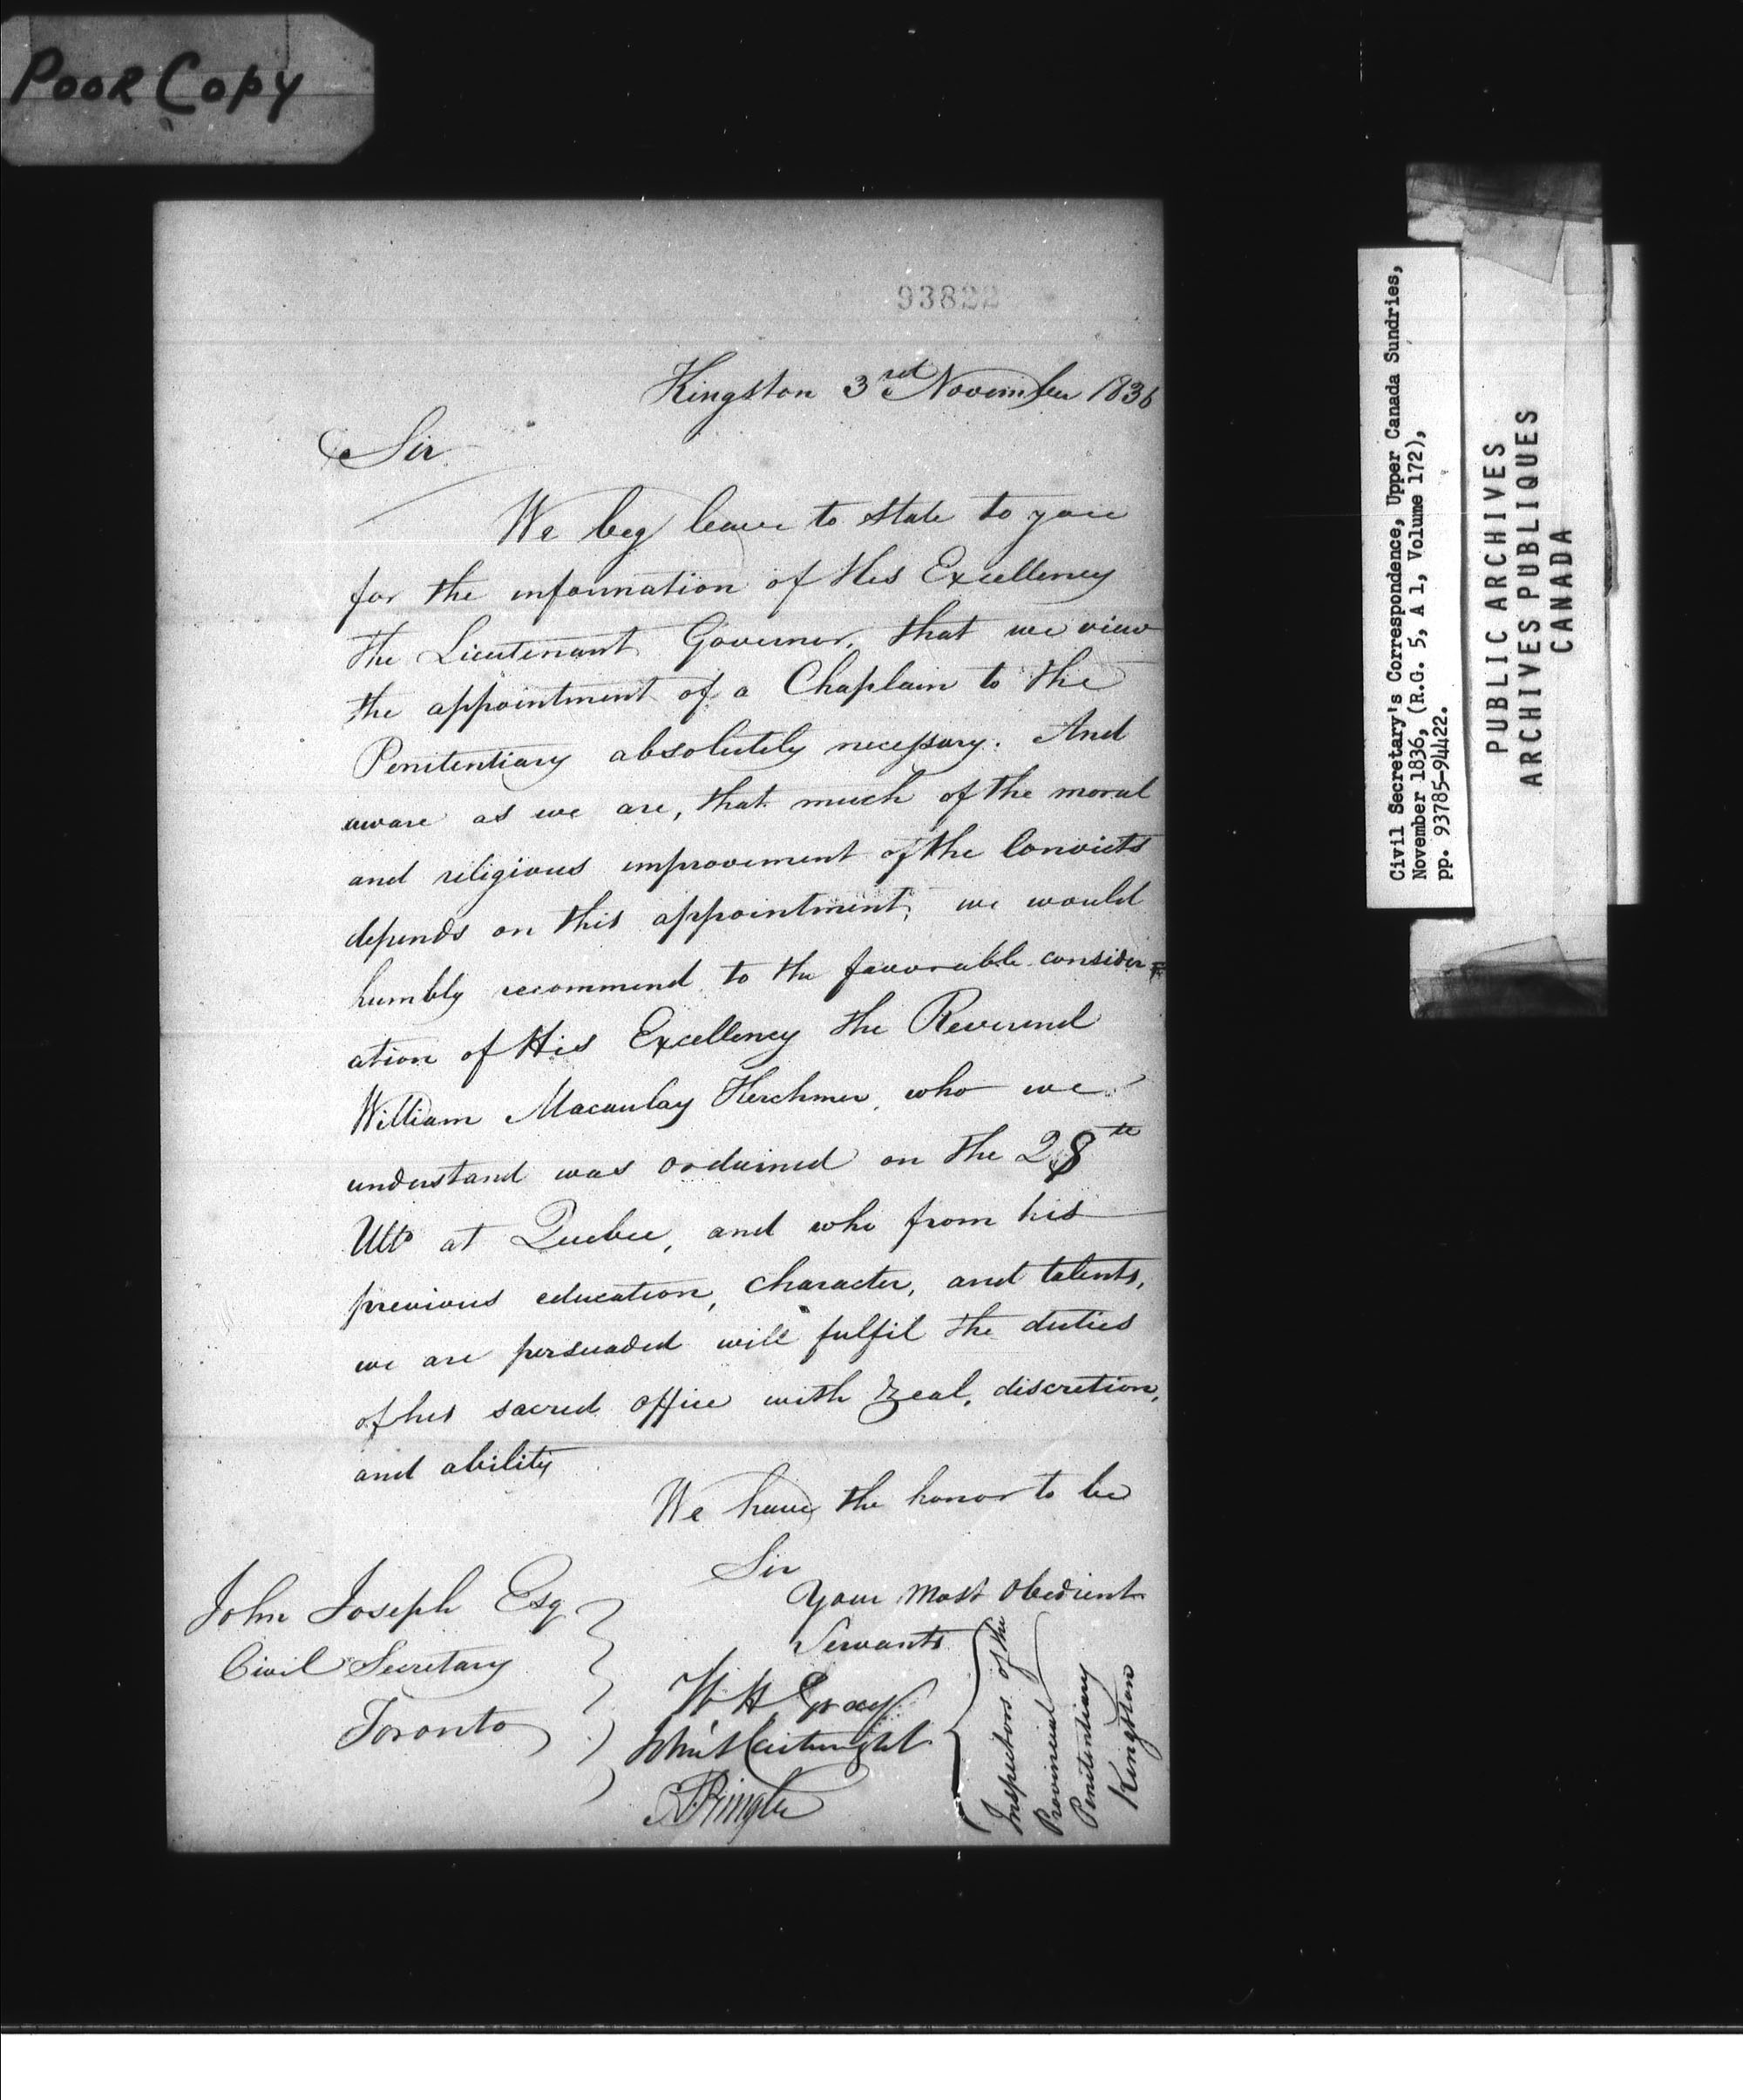 POOR Copy
93822
Kingston 3rd November 1836
Sir
We beg leave to state to you
for the information of His Excellency
the Lieutenant Governor, that we view
the appointment of a Chaplain to the
Penitentiary absolutely necessary. And
aware as we are, that much of the moral
and religious improvement of the Convicts
depends on this appointment, we would
humbly recommend to the favorable consider=
ation of His Excellency the Reverend
William Macaulay Herchmer, who we
understand was ordained on the 28th
Ulto at Quebec, and who from his
previous education, character, and talents,
we are persuaded will fulfil the duties
of his sacred office with zeal, discretion,
and ability
We have the honor to be
Sir
Your Most Obedient
Servants
John Joseph Esq
Civil Secretary
Toronto
W H Gray
John S Cartwright
A Pringle
Inspectors of the
Provincial
Penitentiary
Kingston
Civil Secretary's Correspondence, Upper Canada Sundries,
November 1836, (R.G. 5, A 1, Volume 172),
pp. 93785-94422.
PUBLIC ARCHIVES
ARCHIVES PUBLIQUES
CANADA